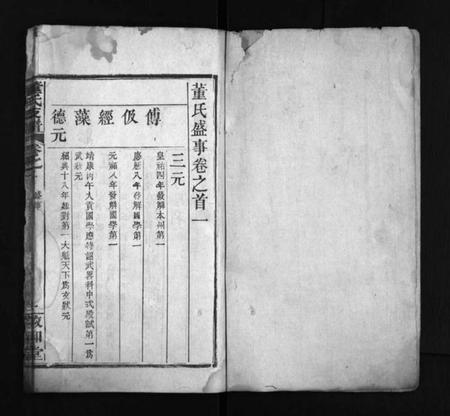 董氏盛事卷之首一
三元
傅 皇祐四年發解本州第一
伋 慶曆八年發解國學第一
經 元祐八年發解國學第一
藻 靖康丙午入貢國學應特詔武異科中式殿試第一為武狀元
德元 紹興十八年廷對第一大魁天下為文狀元
董氏
敦和堂